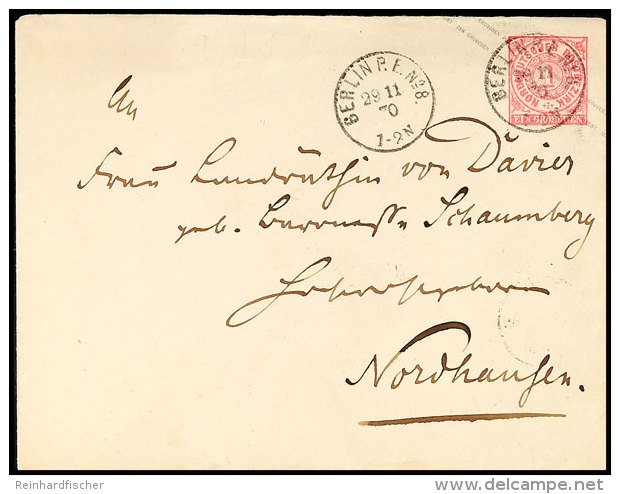 BERLIN P. E. No 8.
29 11
70
1-2 N
NORDDEUTSCHER POSTBEZIRK
1
EIN GROSCHEN
An
Frau Landräthin von Davier
geb. Baronesse Schaumberg
Hochwohlgeboren
Nordhausen.
Reinhardfischer
delcampe.net